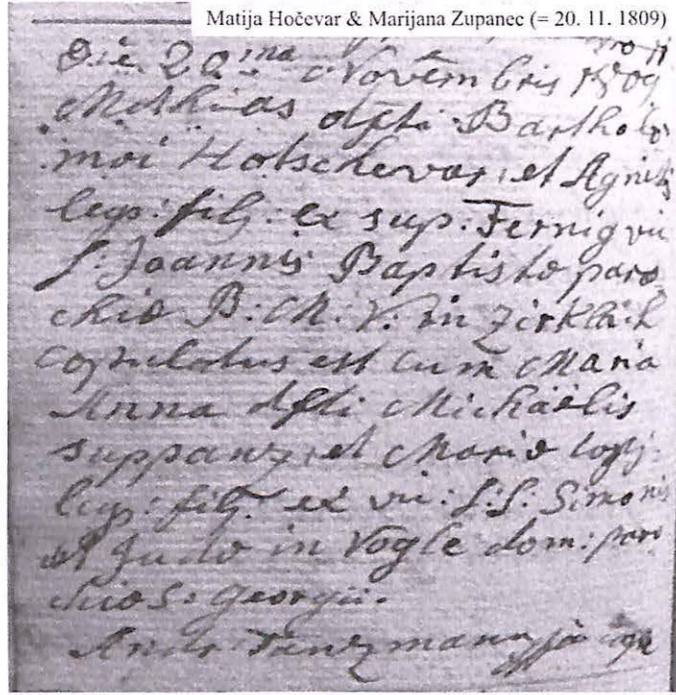 Matija Hočevar & Marijana Zupanec (= 20. 11. 1809)
Die 20ma Novembris 1809
Mathias dfti Bartholo
moi Hotschevar, et Agnetis
leg: filg: ex sup: Fernig vic
S: Joannis Baptistæ paro
chiæ B: M: V: in Zirklach
copulatus est cum Maria
Anna dfti Michäelis
suppanz, et Mariæ
leg: filg: ex vic: S:S: Simonis
et Judæ in Vogle dom: paro
chiæ S: Georgii.